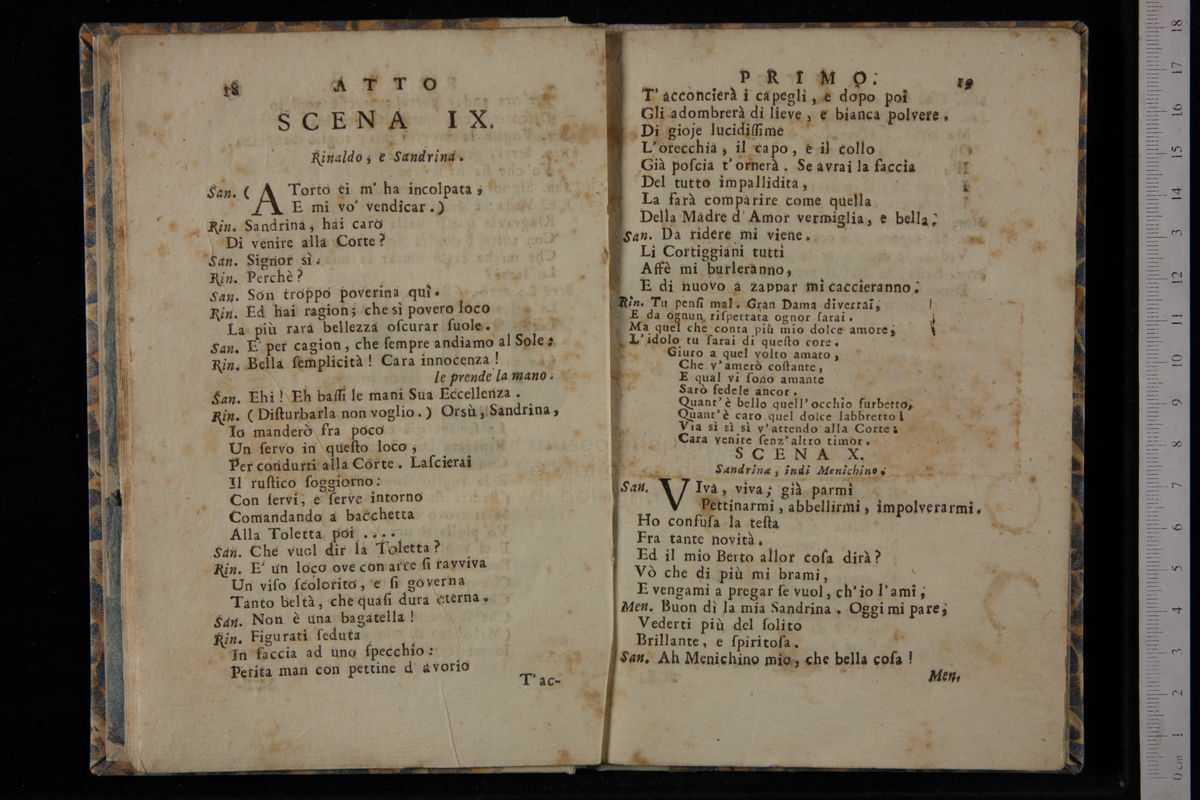 18 ATTO
SCENA IX.
Rinaldo, e Sandrina.
San. ( A Torto ei m' ha incolpata,
E mi vo' vendicar.)
Rin. Sandrina, hai caro
Di venire alla Corte?
San. Signor sì.
Rin. Perchè?
San. Son troppo poverina quì.
Rin. Ed hai ragion; che sì povero loco
La più rara bellezza oſcurar ſuole.
San. E' per cagion, che ſempre andiamo al Sole:
Rin. Bella ſemplicità! Cara innocenza!
le prende la mano.
San. Ehi! Eh baſſi le mani Sua Eccellenza.
Rin. (Diſturbarla non voglio.) Orsù, Sandrina,
Io manderò fra poco
Un ſervo in queſto loco,
Per condurti alla Corte. Laſcierai
Il ruſtico ſoggiorno:
Con ſervi, e ſerve intorno
Comandando a bacchetta
Alla Toletta poi ....
San. Che vuol dir la Toletta?
Rin. E' un loco ove con arte ſi ravviva
Un viſo ſcolorito, e ſi governa
Tanto beltà, che quaſi dura eterna.
San. Non è una bagatella!
Rin. Figurati ſeduta
In faccia ad uno ſpecchio:
Perita man con pettine d avorio
T' ac-
PRIMO. 19
T' acconcierà i capegli, e dopo poi
Gli adombrerà di lieve, e bianca polvere.
Di gioje lucidiſſime
L'orecchia, il capo, e il collo
Già poſcia t' ornerà. Se avrai la faccia
Del tutto impallidita,
La farà comparire come quella
Della Madre d' Amor vermiglia, e bella:
San. Da ridere mi viene.
Li Cortiggiani tutti
Affè mi burleranno,
E di nuovo a zappar mi caccieranno.
Rin. Tu penſi mal. Gran Dama diverrai,
E da ognun riſpettata ognor ſarai.
Ma quel che conta più mio dolce amore,
L'idolo tu ſarai di queſto core.
Giuro a quel volto amato,
Che v'amerò coſtante,
E qual vi ſono amante
Sarò fedele ancor.
Quant'è bello quell'occhio furbetto,
Quant'è caro quel dolce labbretto!
Via sì sì sì v'attendo alla Corte:
Cara venite ſenz'altro timor.
SCENA X.
Sandrina, indi Menichino.
San. VIva, viva; già parmi
Pettinarmi, abbellirmi, impolverarmi.
Ho confuſa la teſta
Fra tante novità.
Ed il mio Berto allor coſa dirà?
Vò che di più mi brami,
E vengami a pregar ſe vuol, ch'io l'ami;
Men. Buon dì la mia Sandrina. Oggi mi pare,
Vederti più del ſolito
Brillante, e ſpiritoſa.
San. Ah Menichino mio, che bella coſa!
Men.